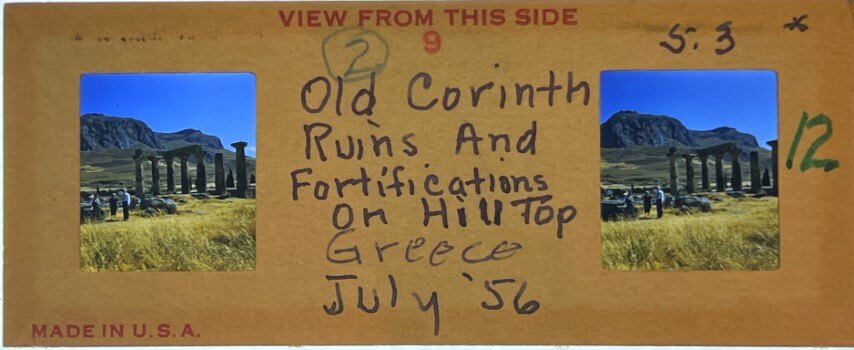 VIEW FROM THIS SIDE
9
2
S. 3 *
Old Corinth
Ruins And
Fortifications
On Hill Top
Greece
July '56
12
MADE IN U.S.A.